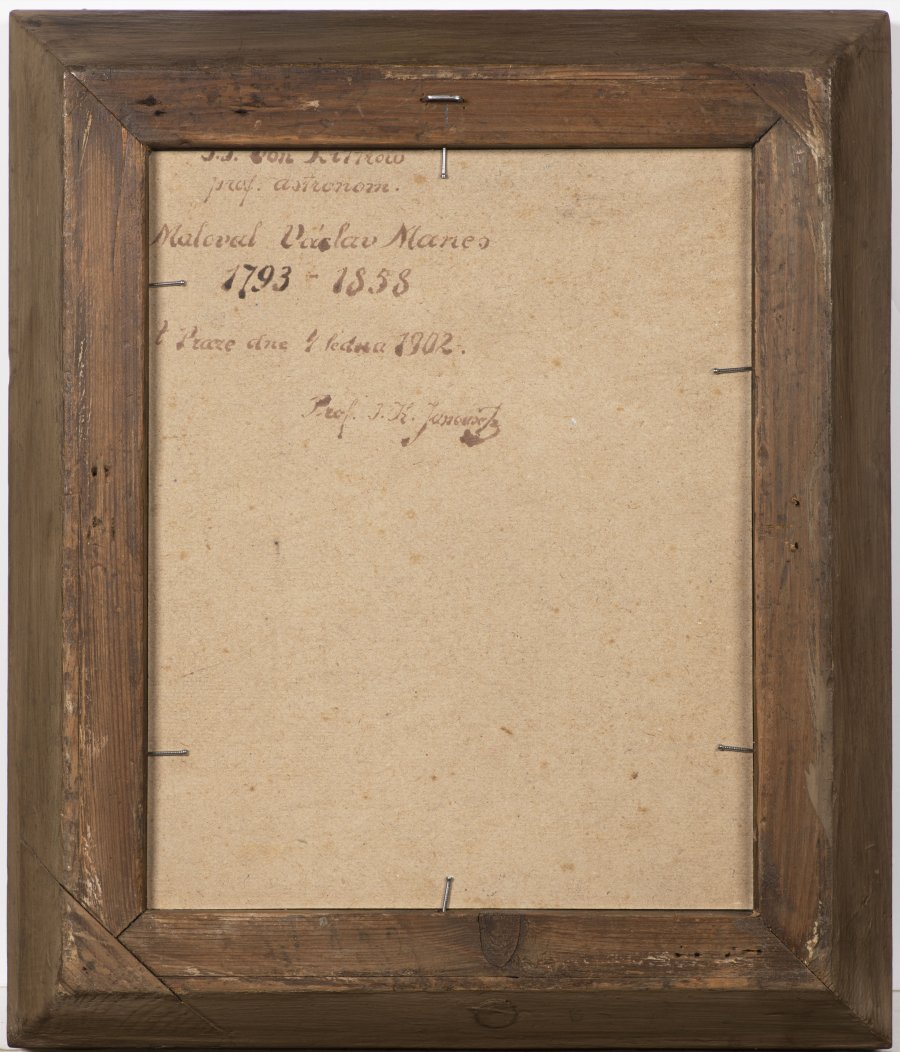 J.J. von Littrow
prof. astronom.
Maloval Václav Manes
1793 - 1858
V Praze dne 4 ledna 1902.
Prof. J. K. Janoušek